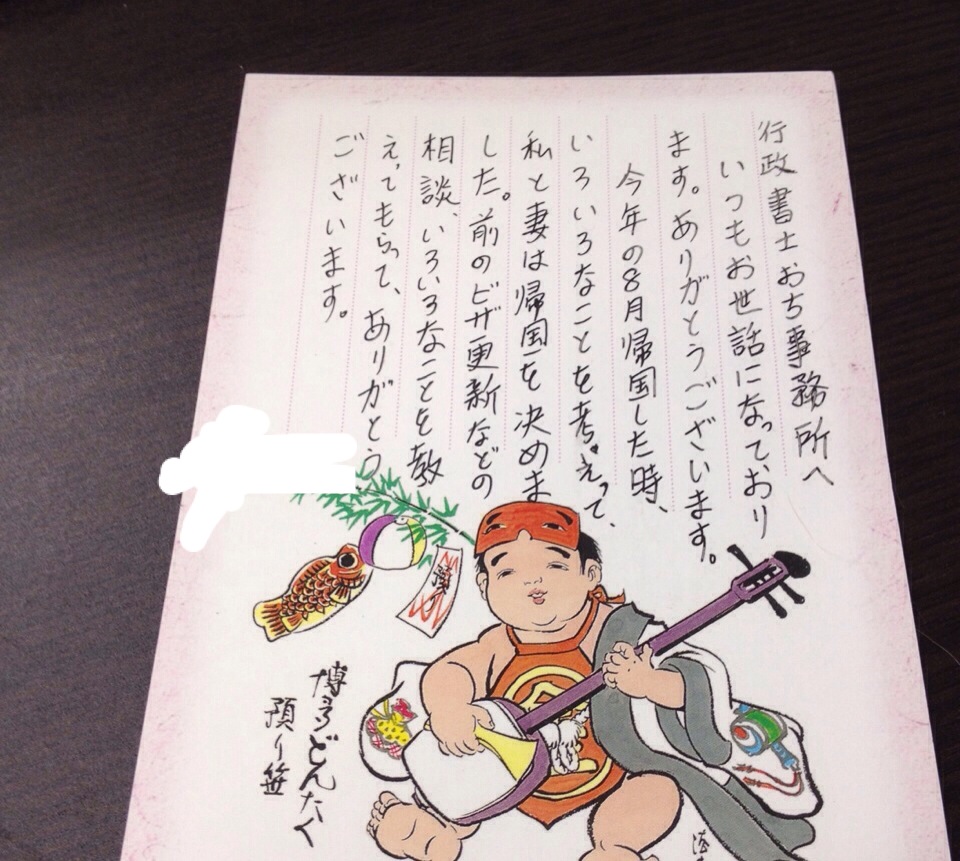 行政書士おち事務所へ
いつもお世話になっており
ます。ありがとうございます。
今年の8月帰国した時、
いろいろなことを考えって、
私と妻は帰国を決めま
した。前のビザ更新などの
相談、いろいろなことを教
えってもらって、ありがとう
ございます。
博多どんたく
預り笹
金